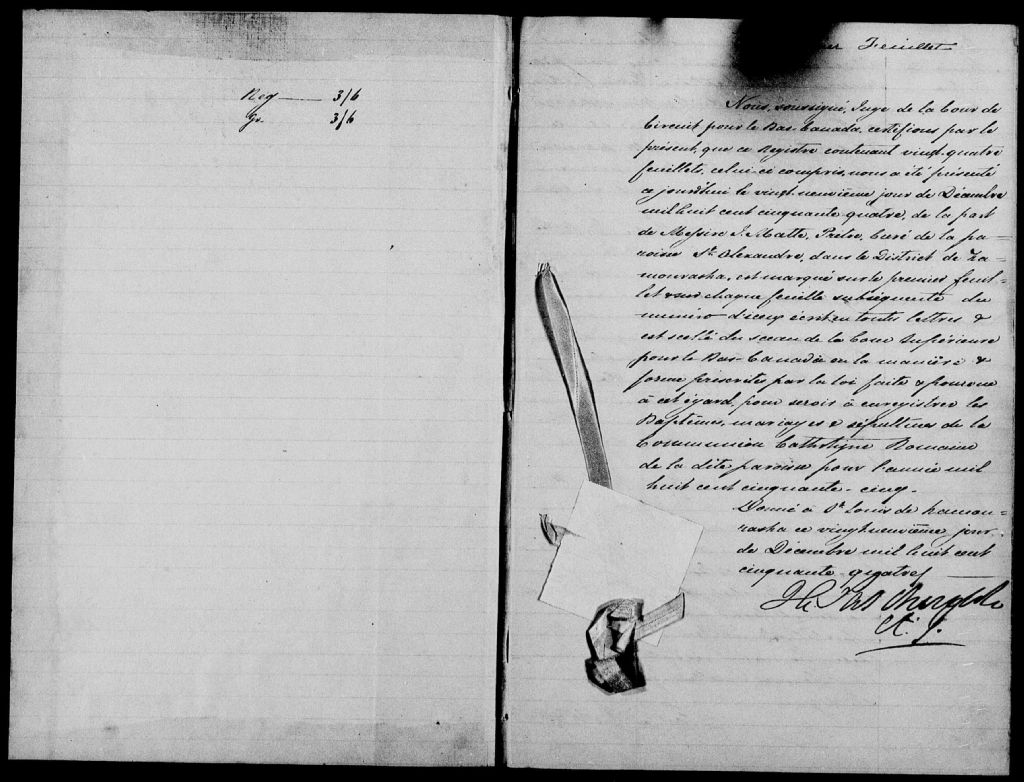 Reg — 3/6
Gr. 3/6
Feuillet
Nous, soussigné, Juge de la Cour de
Circuit pour le Bas-Canada, certifions par le
présent, que ce Registre contenant vingt-quatre
feuillets, celui-ci compris, nous a été présenté
ce jourd'hui le vingt neuvième jour de Décembre
mil huit cent cinquante quatre, de la part
de Messire J. Matte, Prêtre, Curé de la pa=
roisse St. Alexandre, dans le District de Ka-
mouraska, est marqué sur le premier feuil-
let sur chaque feuille subséquente du
numéro d'iceux écrit en toutes lettres &
est scellé du sceau de la Cour Supérieure
pour le Bas-Canada en la manière &
forme prescrites par la loi faite & pourvue
à cet égard, pour servir à enregistrer les
Baptêmes, mariages & sépultures de la
Communion Catholique Romaine
de la dite paroisse pour l'année mil
huit cent cinquante-cinq.
Donné à St. Louis de Kamou-
raska ce vingt neuvième jour
de Décembre mil huit cent
cinquante quatre